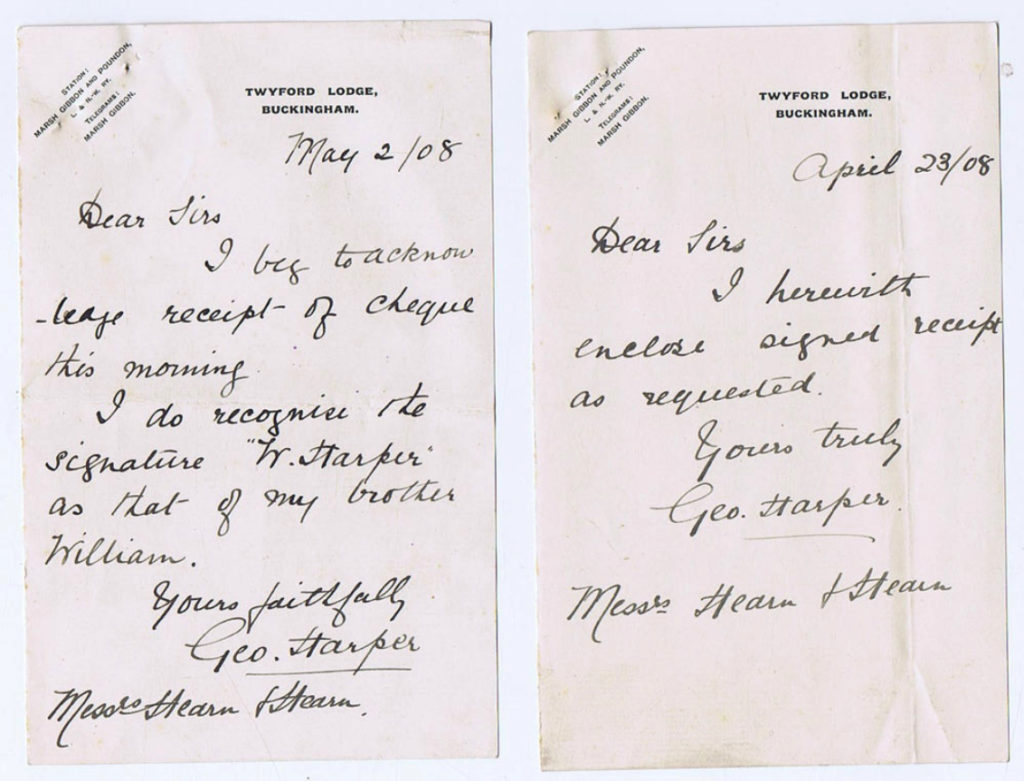 STATION:
MARSH GIBBON AND POUNDON,
L. & N.-W. RY.
TELEGRAMS:
MARSH GIBBON.
TWYFORD LODGE,
BUCKINGHAM.
May 2/08
Dear Sirs
I beg to acknow
-ledge receipt of cheque
this morning
I do recognise the
signature "W. Harper"
as that of my brother
William.
Yours faithfully
Geo. Harper
Messrs Hearn & Hearn.
STATION:
MARSH GIBBON AND POUNDON,
L. & N.-W. RY.
TELEGRAMS:
MARSH GIBBON.
TWYFORD LODGE,
BUCKINGHAM.
April 23/08
Dear Sirs
I herewith
enclose signed receipt
as requested.
Yours truly
Geo. Harper.
Messrs Hearn & Hearn